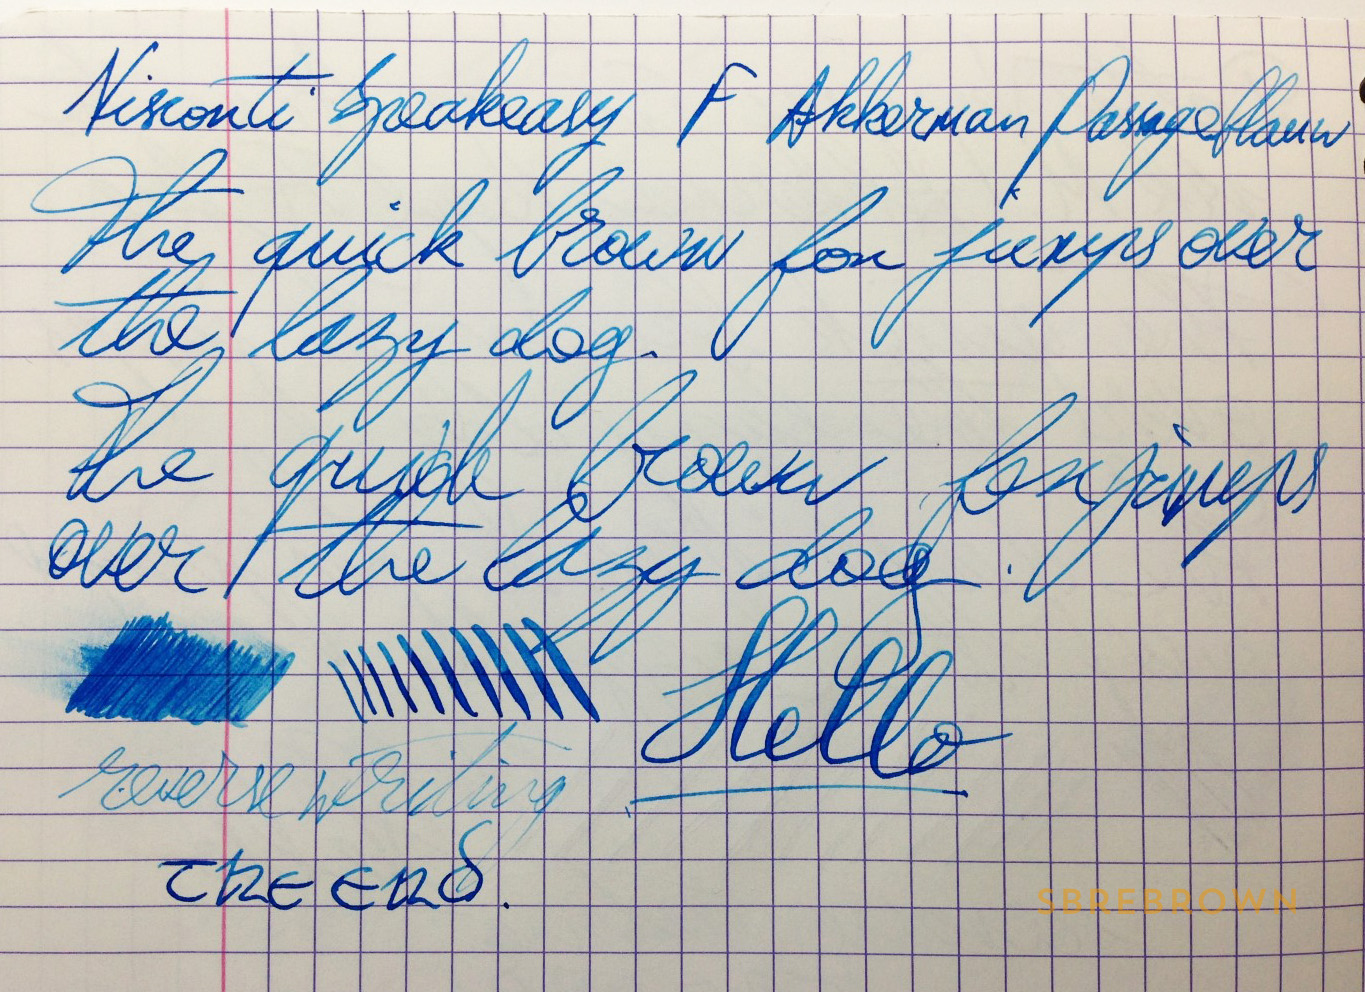 Visconti Speakeasy F Akkerman Passageblauw
The quick brown fox jumps over
the lazy dog.
The quick brown fox jumps
over the lazy dog.
Hello
reverse writing
The end.
SBREBROWN